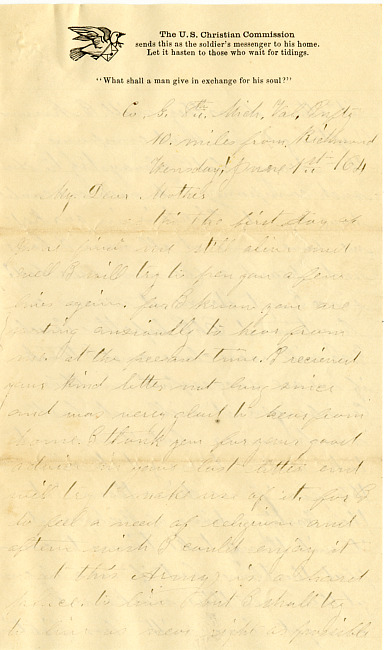 The U.S. Christian Commission
sends this as the soldier's messenger to his home.
Let it hasten to those who wait for tidings.
"What shall a man give in exchange for his soul?"
Co. G. Mich. Vol. Infty
10 miles from Richmond
June 1st /64
My Dear Mother
the first day of
and still alive and
well I will try to pen you a few
lines again. for I know you are
waiting anxiously to hear from
me at the present time. I recieved
your kind letter not long since
and was very glad to hear from
home. I thank you for your good
advice in your last letter and
will try to make use of it. for I
do feel a need of religion and
often wish I could enjoy it
but this Army is a hard
place to live I but I shall try
to live as near right as possible